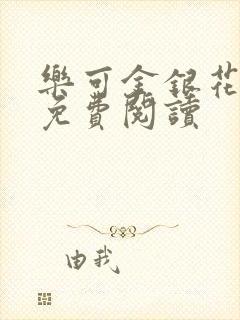 樂可金銀花
免費閱讀
由我